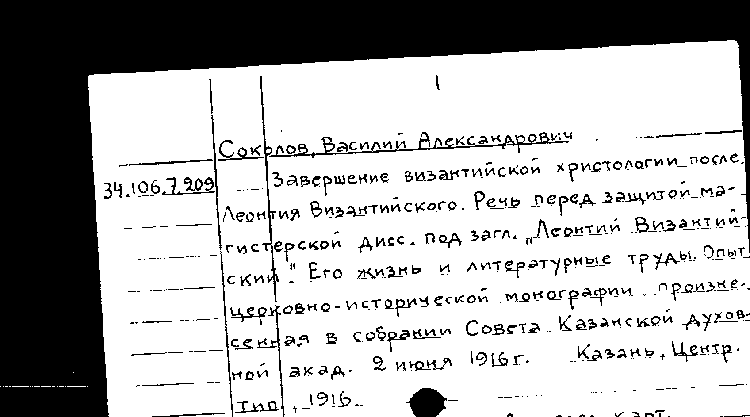 1
Соколов, Василий Александрович
34.106.7.209
Завершение византийской христологии после
Леонтия Византийского. Речь перед защитой ма-
гистерской дисс. под загл. „Леонтий Византий-
ский". Его жизнь и литературные труды. Опыт
церковно-исторической монографии произне-
сенная в собрании Совета Казанской духов-
ной акад. 2 июня 1916 г. Казань, Центр.
тип., 1916.